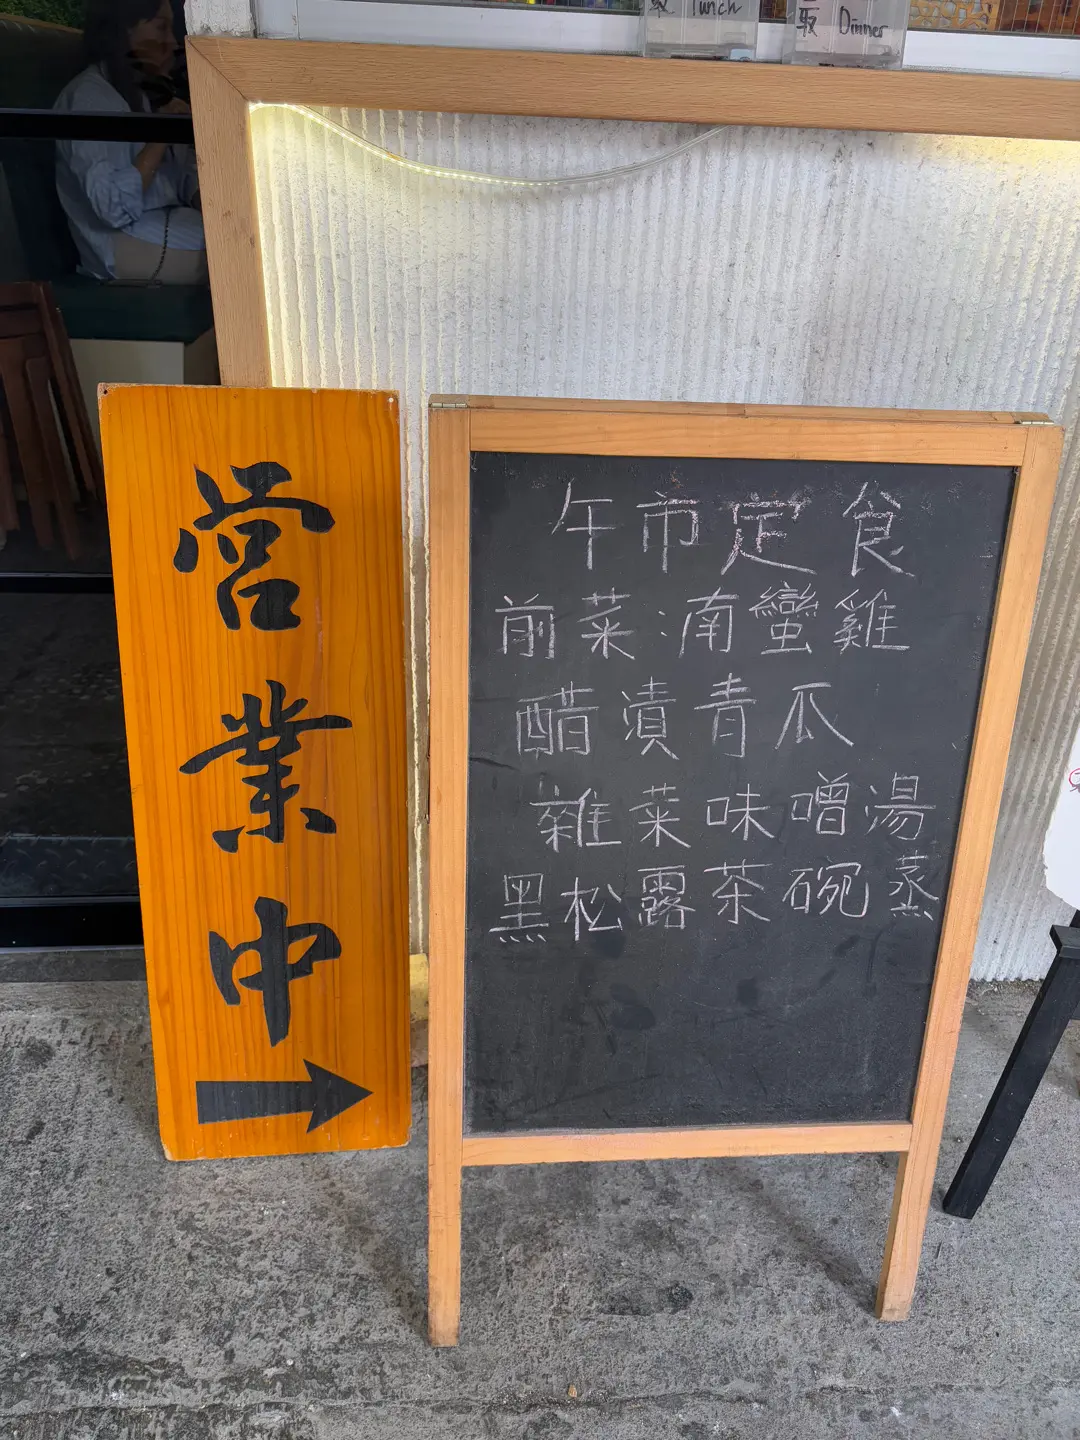 取 Lunch
取 Dinner
営業中
午市定食
前菜:南蠻雞
醋漬青瓜
雜菜味噌湯
黑松露茶碗蒸